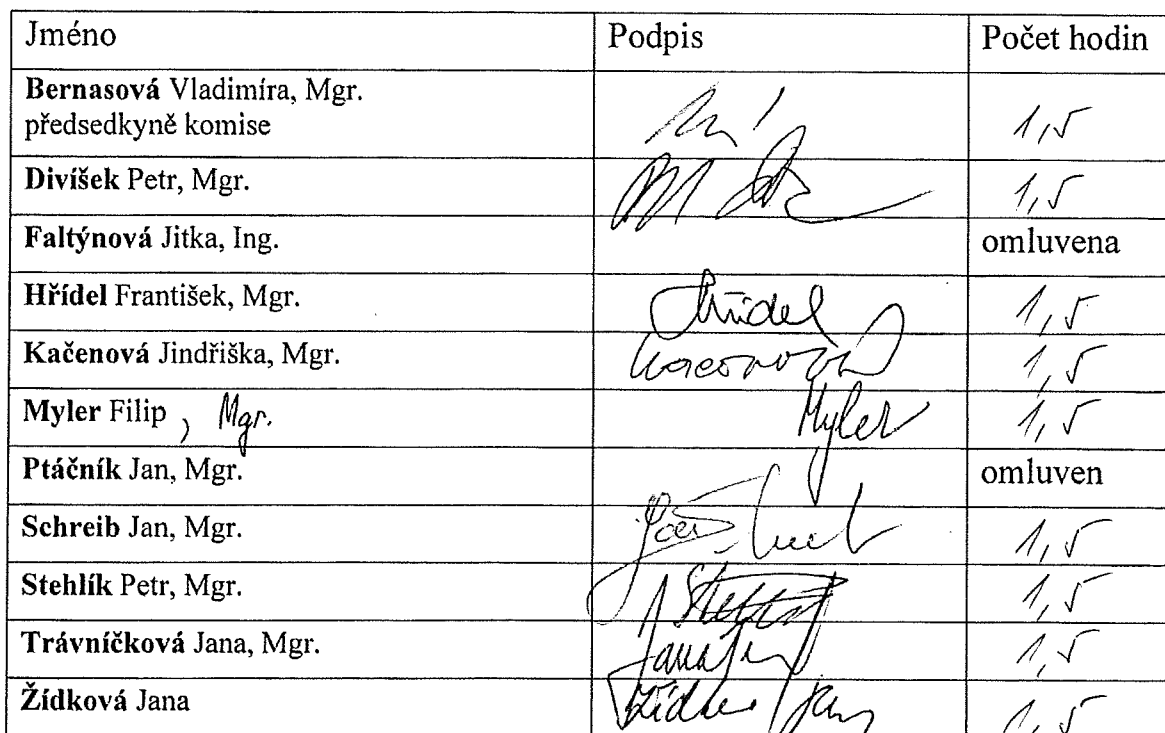 Jméno Podpis Počet hodin
Bernasová Vladimíra, Mgr.
předsedkyně komise 1,5
Divíšek Petr, Mgr. 1,5
Faltýnová Jitka, Ing. omluvena
Hřídel František, Mgr. Hřídel 1,5
Kačenová Jindřiška, Mgr. 1,5
Myler Filip, Mgr. Myler 1,5
Ptáčník Jan, Mgr. omluven
Schreib Jan, Mgr. 1,5
Stehlík Petr, Mgr. 1,5
Trávníčková Jana, Mgr. 1,5
Žídková Jana 1,5